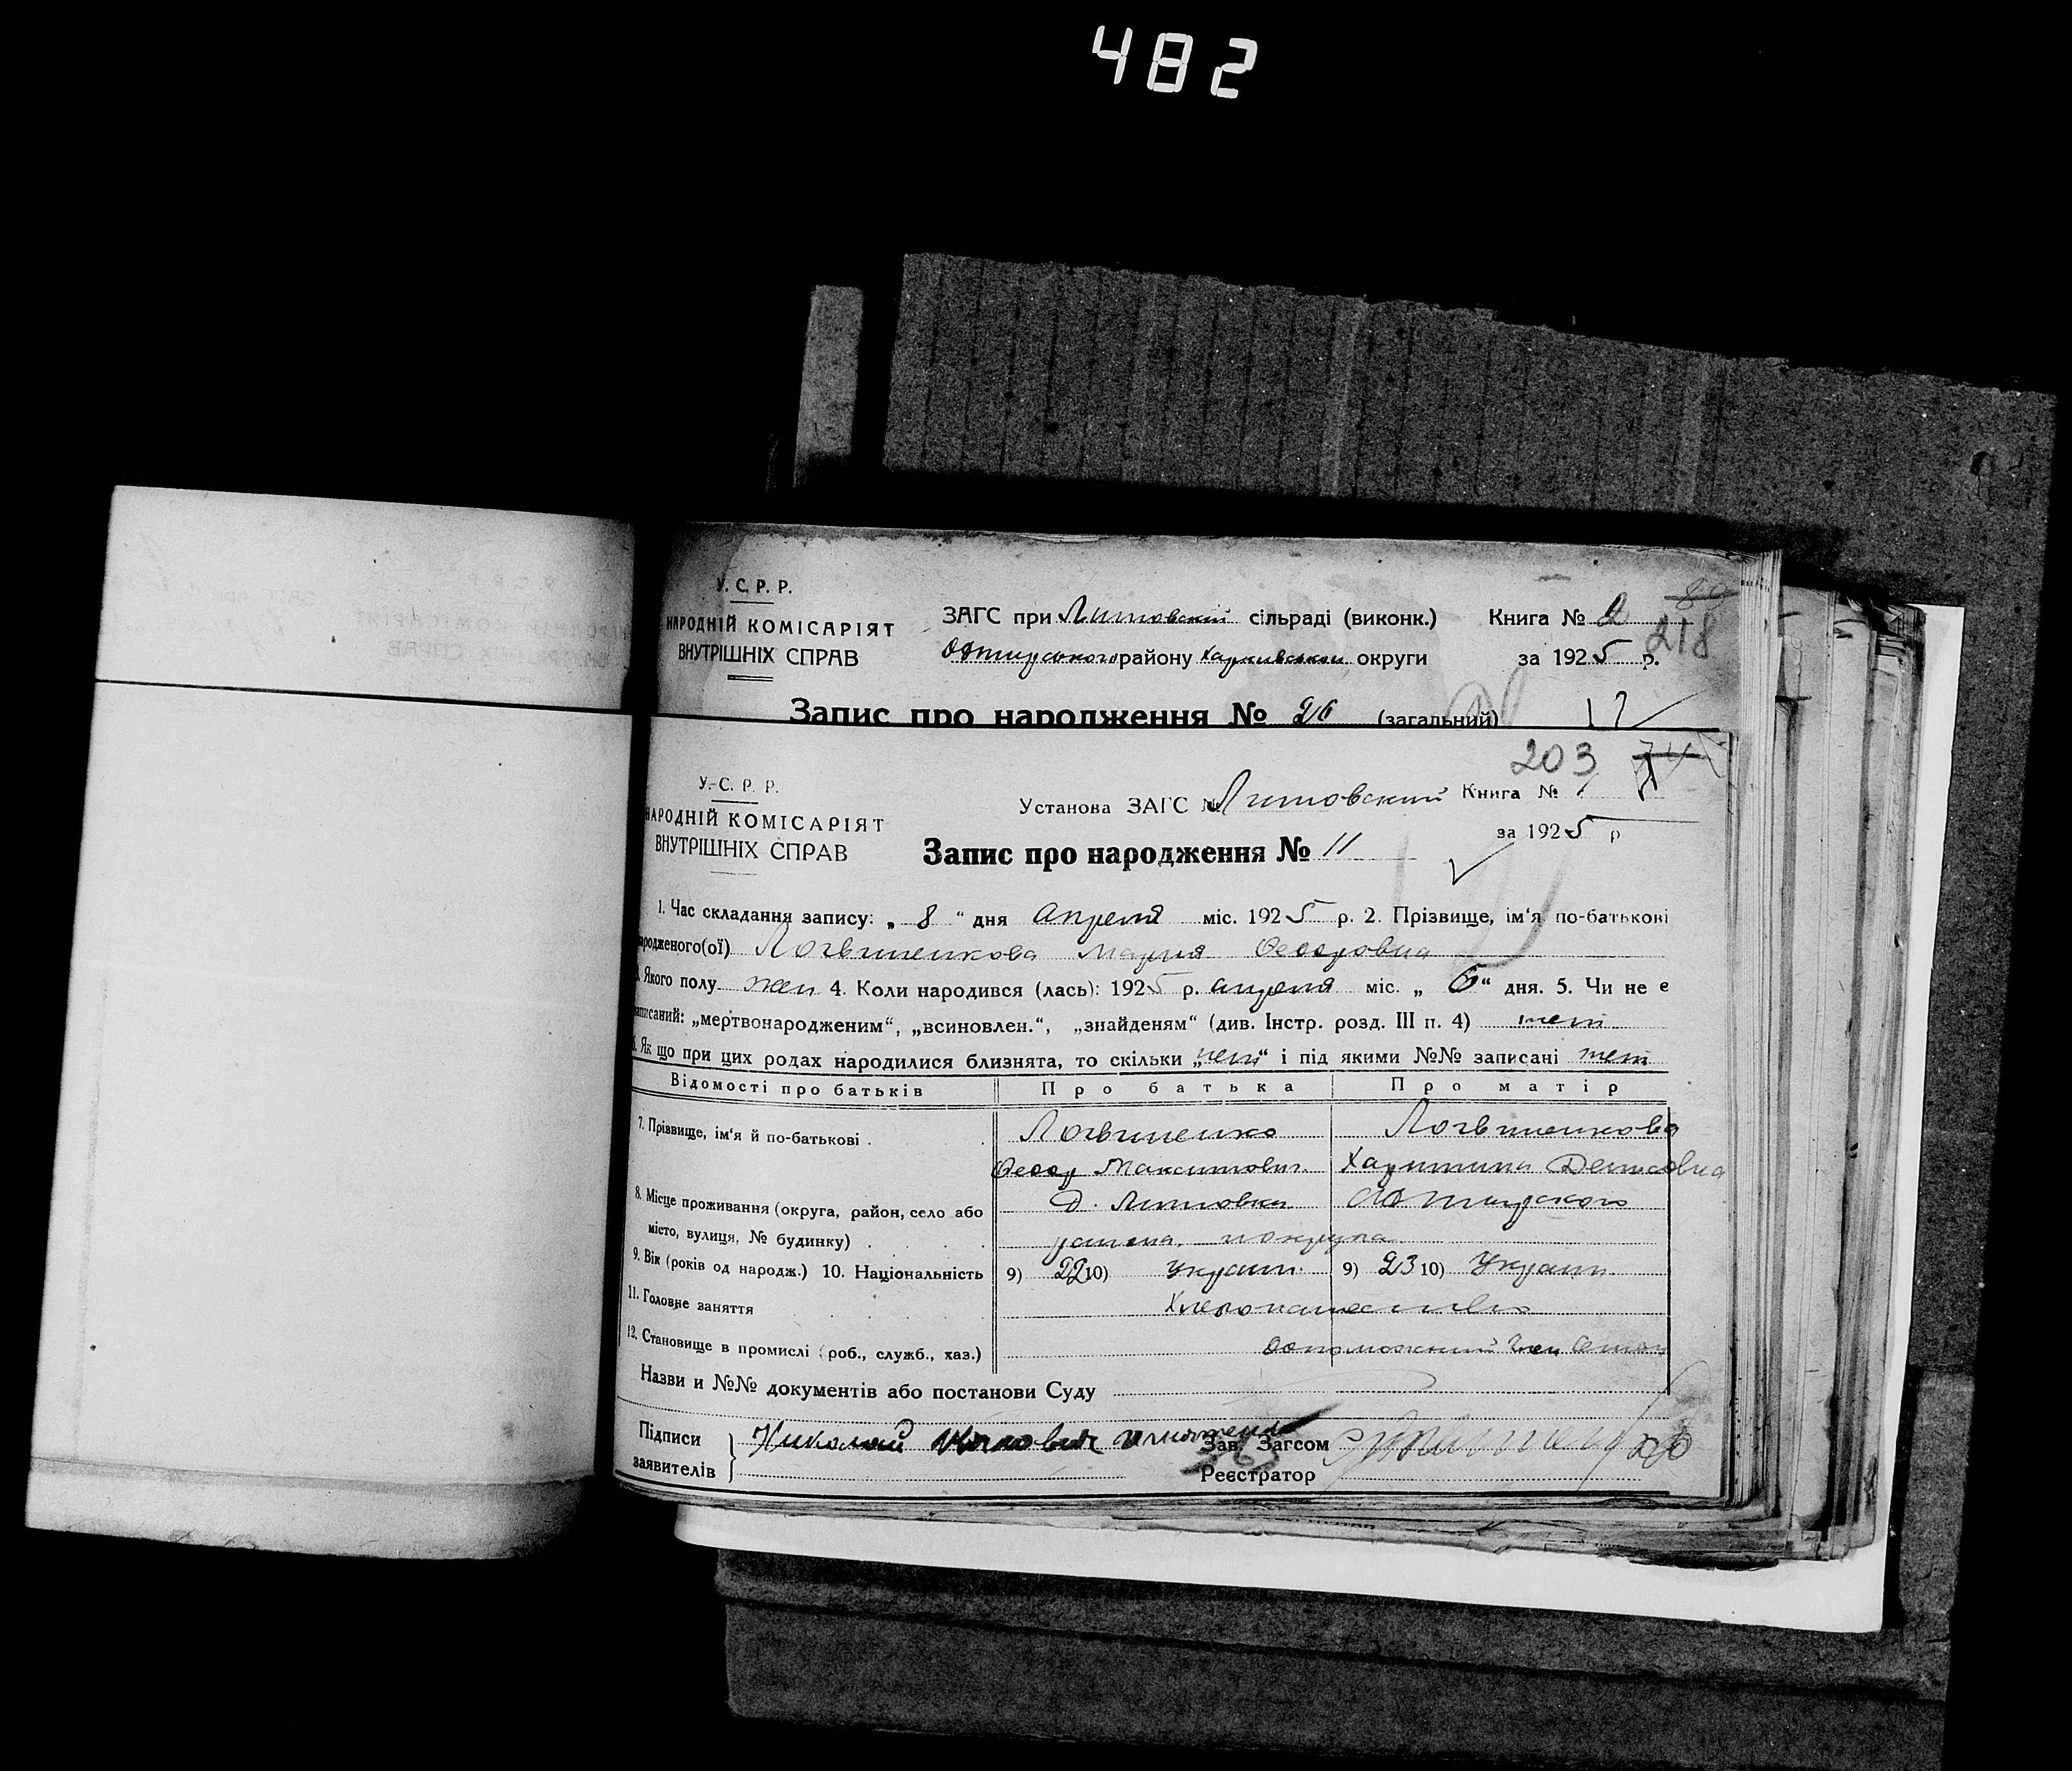 482
У. С. Р. Р.
НАРОДНІЙ КОМІСАРІЯТ
ВНУТРІШНІХ СПРАВ
ЗАГС при Литовскій сільраді (виконк.)
района району Харківської округи
Книга № 2
за 1925 р.
80
218
Запис про народження № 26 (загальний)
17
203
У. С. Р. Р.
НАРОДНІЙ КОМІСАРІЯТ
ВНУТРІШНІХ СПРАВ
Установа ЗАГС № Литовский Книга № 1
за 1925 р
Запис про народження № 11
1. Час складання запису: „ 8 “ дня Апреля міс. 1925 р. 2. Прізвище, ім‘я по-батькові
народженого(ої) Логвиненкова Мария Федоровна
Якого полу жен 4. Коли народився (лась): 1925 р. апреля міс. „ 6 “ дня. 5. Чи не є
записаний: „мертвонародженим“, „всиновлен.“, „знайденям“ (див. Інстр. розд. III п. 4) нет
6. Як що при цих родах народилися близнята, то скільки „нет“ і під якими №№ записані нет
Відомості про батьків Про батька Про матір
7. Прізвище, ім‘я й по-батькові . Логвиненко Логвиненкова
Федор Максимович Харитина Денисовна
8. Місце проживання (округа, район, село або Д. Литовка
місто, вулиця, № будинку)
9. Вік (років од народж.) 10. Національність 9) 22 10) Украин 9) 23 10) Украин
11. Головне заняття Хлебопашество
12. Становище в промислі (роб., служб., хаз.)
Назви и №№ документів або постанови Суду
Підписи
заявителів
Николай
Зав. Загсом
Реєстратор